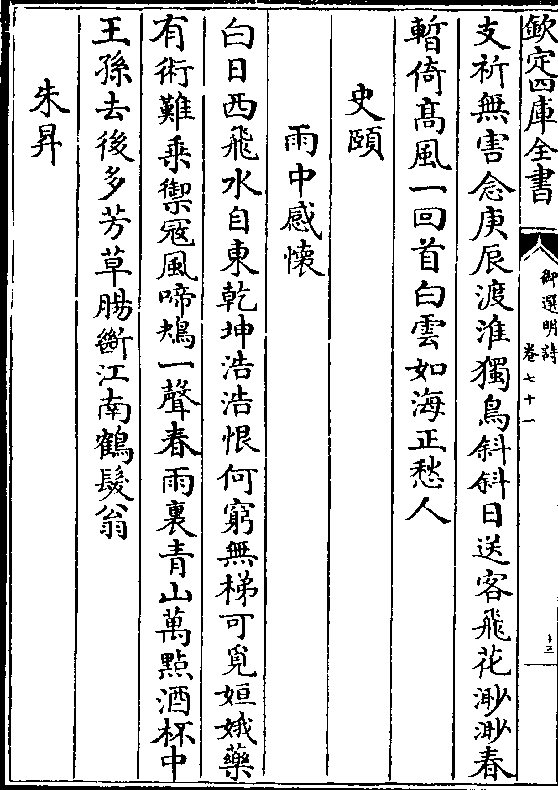 欽定四庫全書
御選明詩
卷七十一
十三
支祈無害念庚辰渡淮獨鳥斜斜日送客飛花渺渺春
暫倚髙風一回首白雲如海正愁人
史頤
雨中感懷
白日西飛水自東乾坤浩浩恨何窮無梯可覓姮娥藥
有術難乗禦冦風啼鴂一聲春雨裏青山萬點酒杯中
王孫去後多芳草腸斷江南鶴髮翁
朱昇